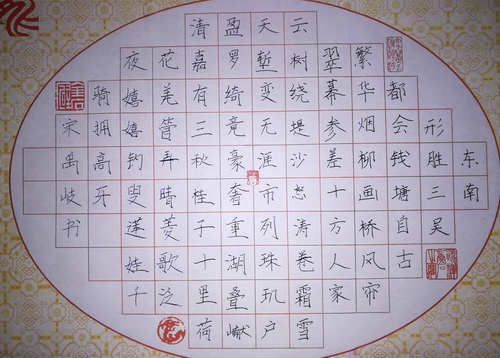 东南
形胜三吴
都会钱塘自古
繁华烟柳画桥风帘
翠幕参差十方人家
云树绕堤沙怒涛卷霜雪
天堑变无涯市列珠玑户
盈罗绮竞豪奢重湖叠巘
清嘉有三秋桂子十里荷
花羌管弄晴菱歌泛
夜嬉嬉钓叟莲娃千
骑拥高牙
宋禹岐书